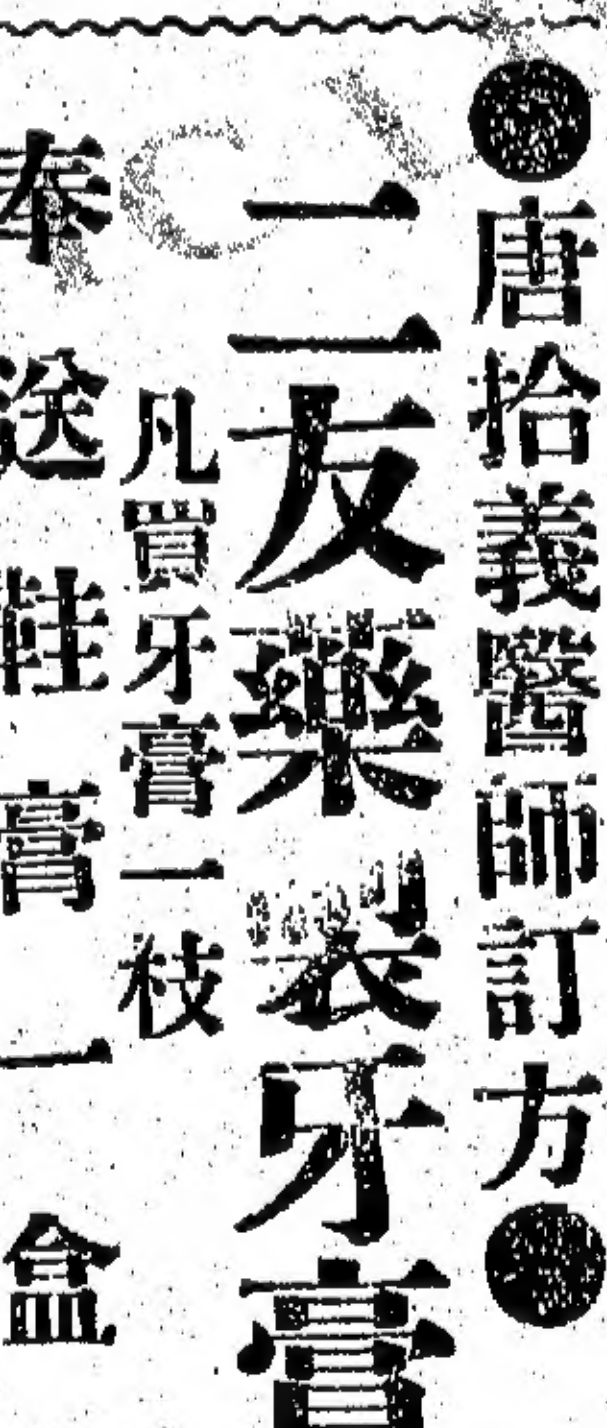 ●唐拾義醫師訂方●
二友藥製牙膏
凡買牙膏一枝
奉送鞋膏一盒